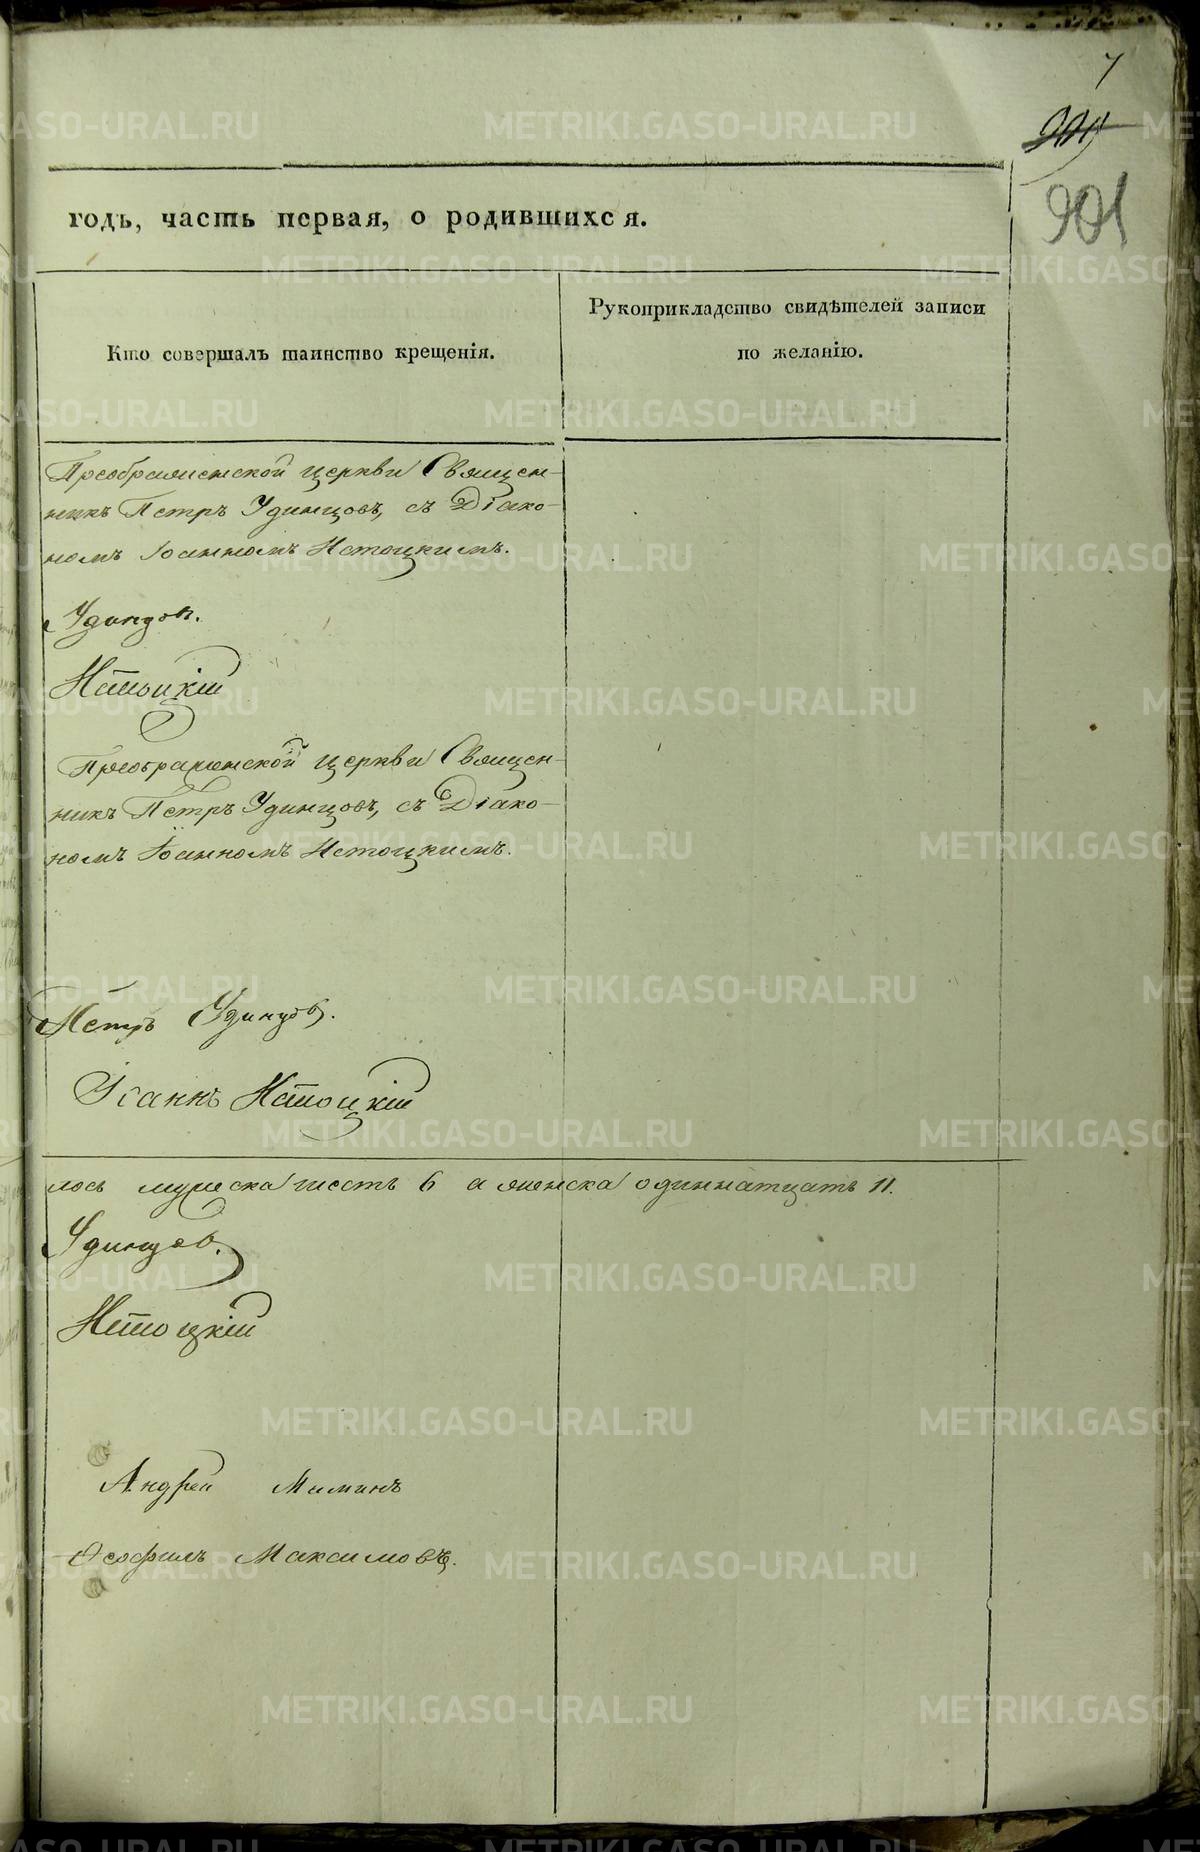 7
901
годъ, часть первая, о родившихся.
Кто совершалъ таинство крещенія.
Рукоприкладство свидѣтелей записи
по желанію.
Преображенской церкви Священ-
никъ Петръ Удинцовъ, съ Діако-
номъ Іоанномъ Истоцкимъ.
Удинцов.
Истоцкій
Преображенской церкви Священ-
никъ Петръ Удинцовъ, съ Діако-
номъ Іоанномъ Истоцкимъ.
Петръ Удинцов.
Іоаннъ Истоцкій
лось мужеска шесть 6 а женска одиннатцать 11.
Удинцов.
Истоцкій
Андрей Маминъ
Ѳеофилъ Максимовъ.
METRIKI.GASO-URAL.RU